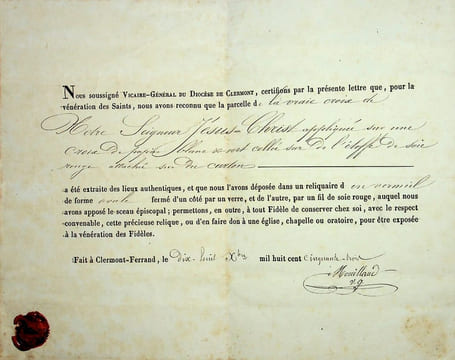 Nous soussigné Vicaire-Général du Diocèse de Clermont, certifions par la présente lettre que, pour la
vénération des Saints, nous avons reconnu que la parcelle de la vraie croix de
Notre Seigneur Jésus-Christ appliquée sur une
croix de papier blanc et collée sur de l'étoffe de soie
rouge attaché sur du carton
a été extraite des lieux authentiques, et que nous l'avons déposée dans un reliquaire d en vermeil
de forme ovale fermé d'un côté par un verre, et de l'autre, par un fil de soie rouge, auquel nous
avons apposé le sceau épiscopal; permettons, en outre, à tout Fidèle de conserver chez soi, avec le respect
convenable, cette précieuse relique, ou d'en faire don à une église, chapelle ou oratoire, pour être exposée
à la vénération des Fidèles.
Fait à Clermont-Ferrand, le dix-huit Xbre mil huit cent cinquante-trois
v.g